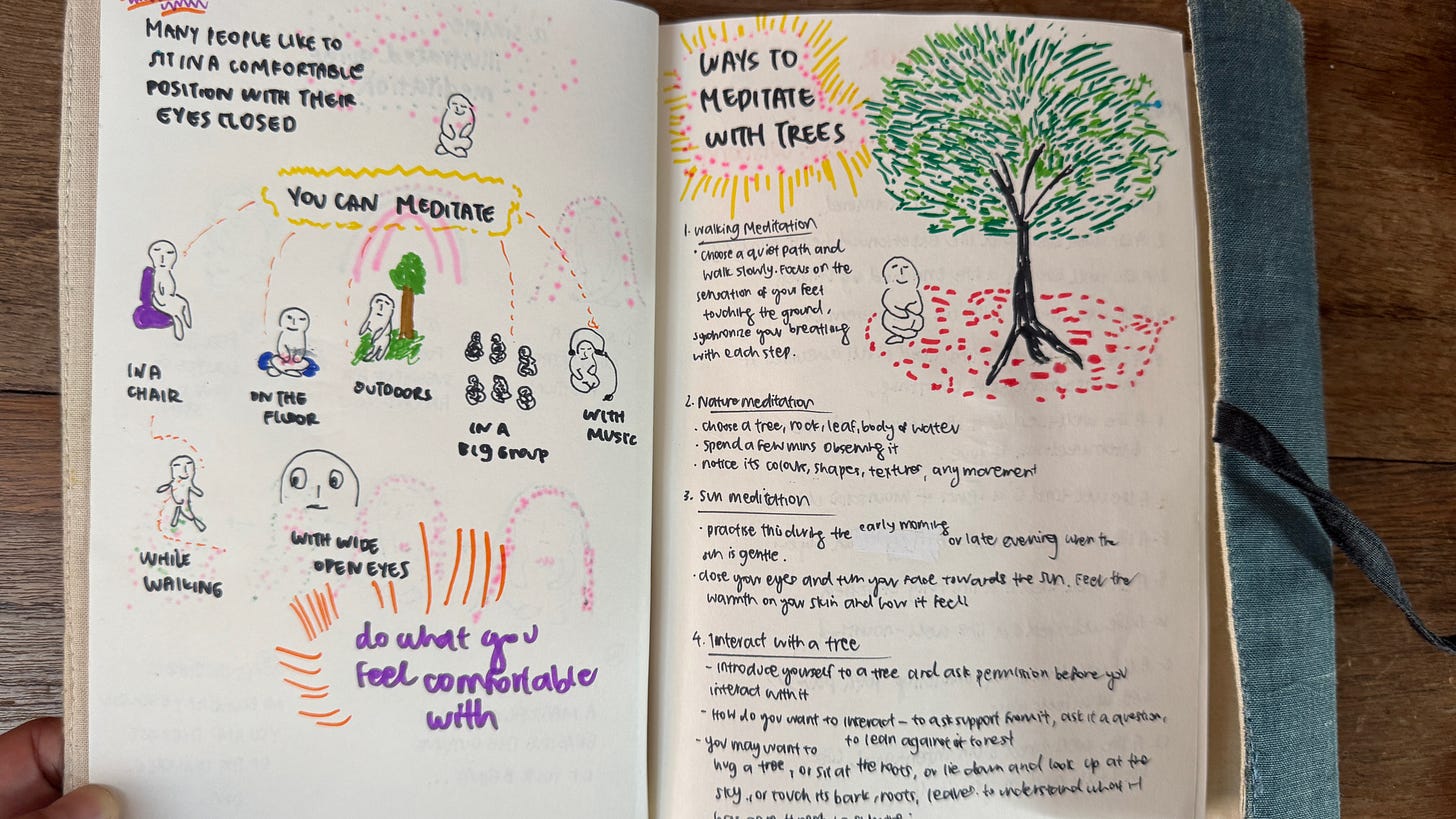 MANY PEOPLE LIKE TO
SIT IN A COMFORTABLE
POSITION WITH THEIR
EYES CLOSED
YOU CAN MEDITATE
IN A
CHAIR
ON THE
FLOOR
OUTDOORS
IN A
BIG GROUP
WITH
MUSIC
WHILE
WALKING
WITH WIDE
OPEN EYES
do what you
feel comfortable
with
WAYS TO
MEDITATE
WITH TREES
1. Walking Meditation
• Choose a quiet path and
walk slowly. Focus on the
sensation of your feet
touching the ground,
synchronize your breathing
with each step.
2. Nature meditation
• choose a tree, rock, leaf, body of water
• spend a few mins observing it
• notice its colours, shapes, textures, any movement
3. Sun meditation
• practise this during the early morning or late evening when the
sun is gentle.
• close your eyes and turn your face towards the sun. Feel the
warmth on your skin and how it feels
4. Interact with a tree
- introduce yourself to a tree and ask permission before you
interact with it
- How do you want to interact - to ask support from it, ask it a question,
to lean against it to rest
- you may want to
hug a tree, or sit at the roots, or lie down and look up at the
sky, or touch its bark, roots, leaves. to understand what it